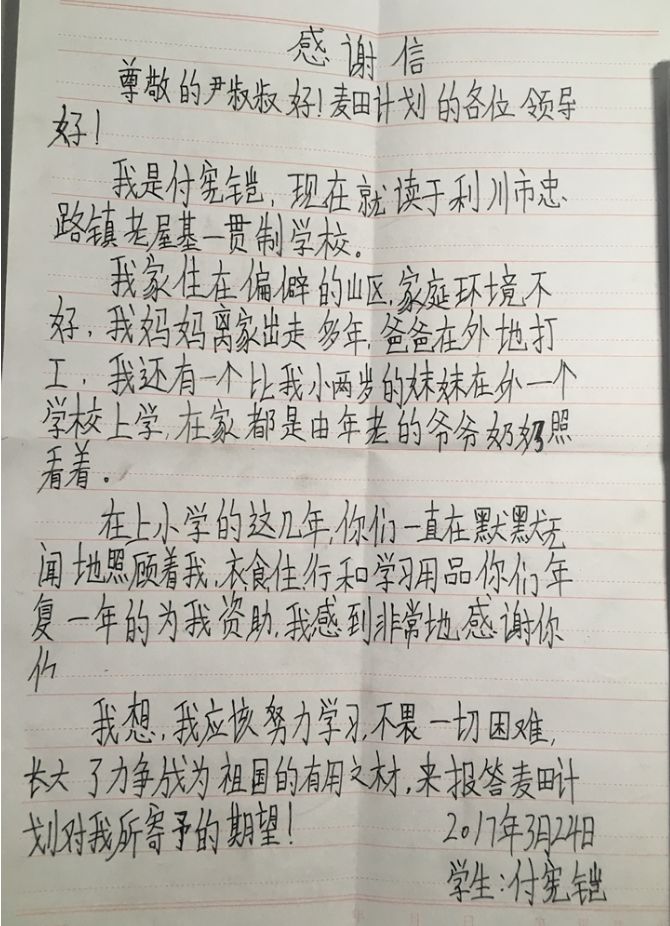 感谢信
尊敬的尹叔叔好!麦田计划的各位领导
好!
我是付宪铠,现在就读于利川市忠
路镇老屋基一贯制学校。
我家住在偏僻的山区,家庭环境不
好,我妈妈离家出走多年,爸爸在外地打
工,我还有一个比我小两岁的妹妹在外一个
学校上学,在家都是由年老的爷爷奶奶照
看着。
在上小学的这几年,你们一直在默默无
闻地照顾着我,衣食住行和学习用品你们年
复一年的为我资助,我感到非常地感谢你
们
我想,我应该努力学习,不畏一切困难,
长大了力争成为祖国的有用之材,来报答麦田计
划对我所寄予的期望!
2017年3月24日
学生:付宪铠